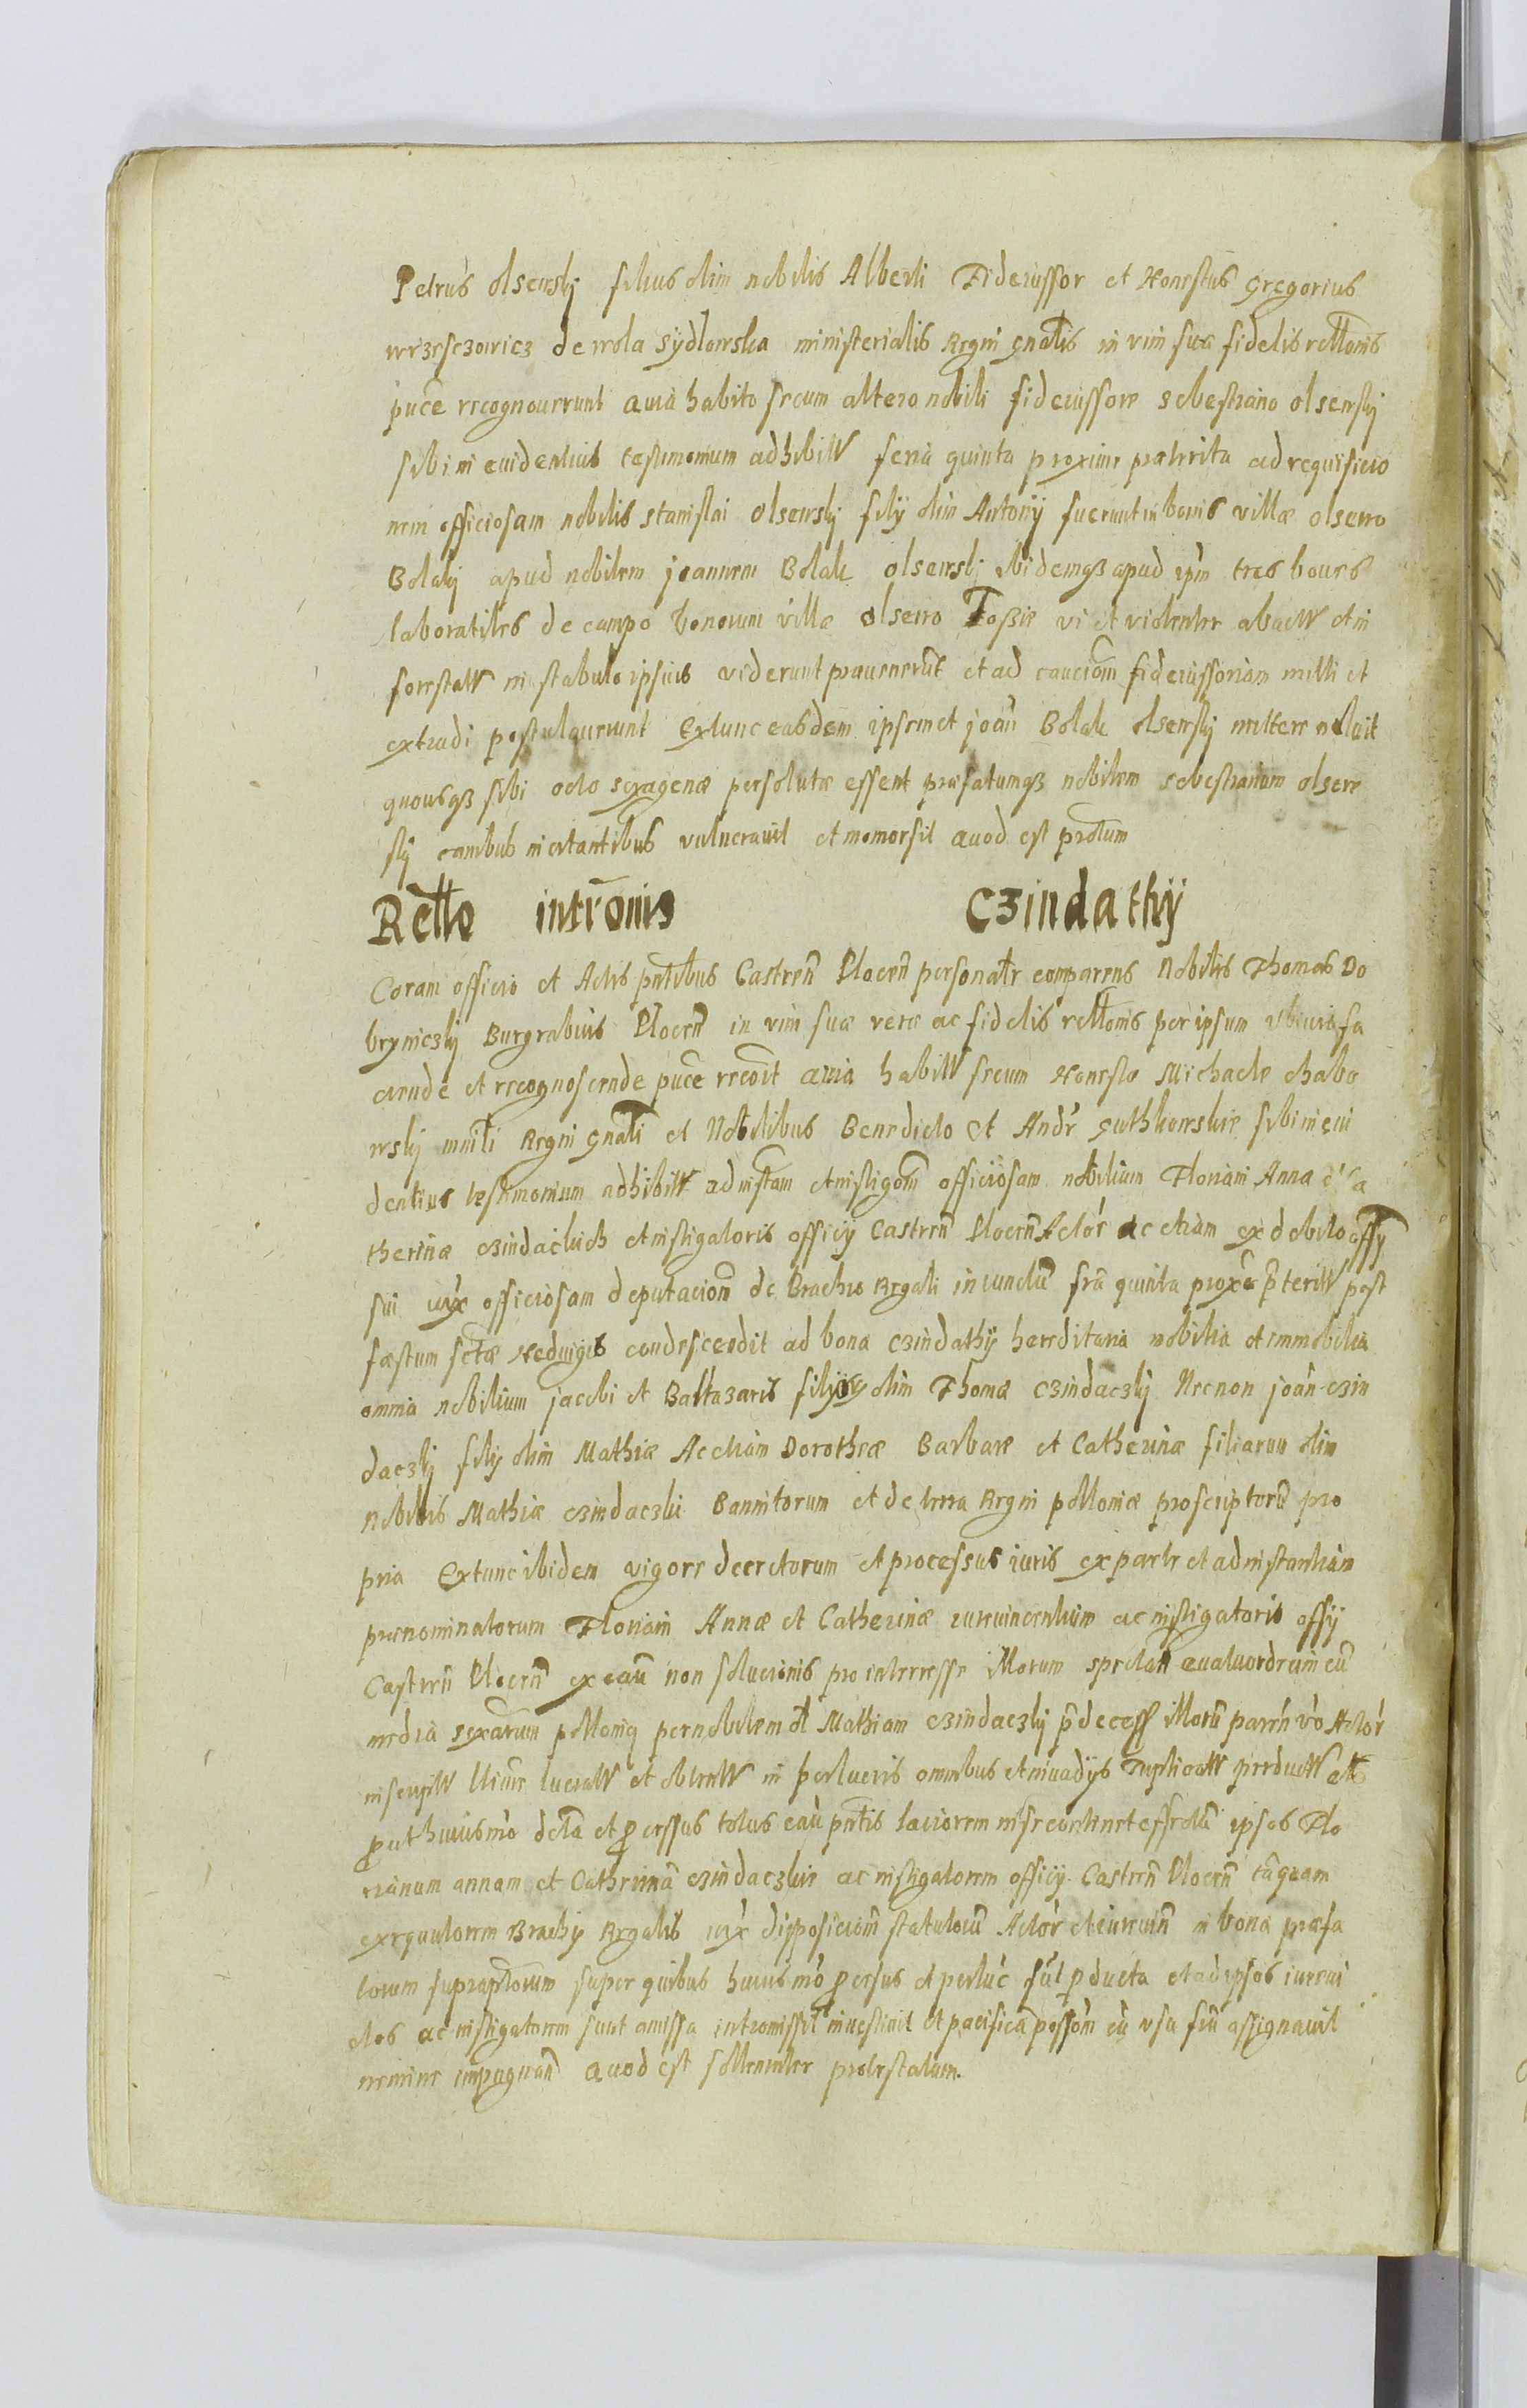 Petrus olsewskj filius olim nobilis Alberti Fideiussor et Honestus Gregorius
wrzesczowicz de wola sydlowska ministerialis Regni gnalis in vim suæ fidelis rellonis
puce recognouerunt quia habito secum altero nobili fideiussore sebestiano olsewskj
sibi in euidentius testimonium adhibitt feria quinta proxime præterita ad requisicio
nem officiosam nobilis stanislai olsewskj filÿ olim Antonÿ fuerunt in bonis villæ olsewo
Bolakj apud nobilem joannem Bolak olsewskj ibidemqz apud ipm tres boues
laboratiles de campo bonorum villæ olsewo vi et violenter abactt et in
forestatt in stabulo ipsius viderunt prauenerunt et ad cauciom fideiussoriam mitti et
extradi postulauerunt Extunc eosdem ipsemet joan Bolak olsewskj mittere noluit
quousqz sibi octo sexagenæ persolutæ essent præfatumqz nobilem sebestianum olsew
skj canibus incitantibus vulnerauit et momorsit quod est protum
Rello intronis Czindathÿ
Coram officio et Actis pntibus Castren Plocen personatr comparens Nobilis Thomas Do
brzniczkj Burgrabius Plocen in vim suæ veræ ac fidelis rellonis per ipsum vbiuis fa
ciende et recognoscende puce recoit quia habitt secum Honesto Michaele chabo
wskj mnrli Regni gnali et Nobilibus Benedicto et Andr guthkowskie sibi in eui
dentius testimonium adhibitt ad instam et instigaom officiosam nobilium Floriani Anna et Ca
therinæ czindaczkich et instigatoris officÿ Castren Plocen Actor ac etiam ex debito offÿ
sui iux officiosam deputaciom de Brachio Regali iniunctu fria quinta proxe pteritt post
fæstum sctæ Heduigis condescendit ad bona czindathÿ hæreditaria mobilia et immobilia
omnia nobilium jacobi et Baltazaris filior olim Thomæ czindaczkj Necnon joan czin
daczkj filÿ olim Mathiæ Ac etiam Dorotheæ Barbaræ et Catherinæ filiarum olim
nobilis Mathiæ czindaczki Bannitorum et de terra Regni polloniæ proscriptoru pro
pria Extunc ibidem vigore decretorum et processus iuris ex parte et ad instantiam
prænominatorum Floriani Annæ et Catherinæ iureuincentium ac instigatoris offÿ
Castren Plocen ex cau non solucionis pro interresse illorum spectan quatuordecim cu
media sexarum pollonig per nobilem ol Mathiam czindaczkj pdecess illoru paren vo Actor
inscriptt lucratt et obtentt in perlucris omnibus et inuadÿs Triplicatt perductt
put huiusmo delta et pcessus totus cau pntis laciorem in se continet effectu ipsos Flo
rianum annam et Catherina czindaczkie ac instigatorem officÿ Castren Plocen taquam
exequutorem Brachÿ Regalis iux disposiciom statutoru Actor et iureuin in bona præfa
torum suprapторum super quibus huiusmo pcessus et perluc sut pducta et ad ipsos iureui
ctos ac instigatorem sunt amissa intromissit inuestiuit et pacifica posseom cu vsu fru assignauit
nemine impugnan quod est sollenniter protestatum.